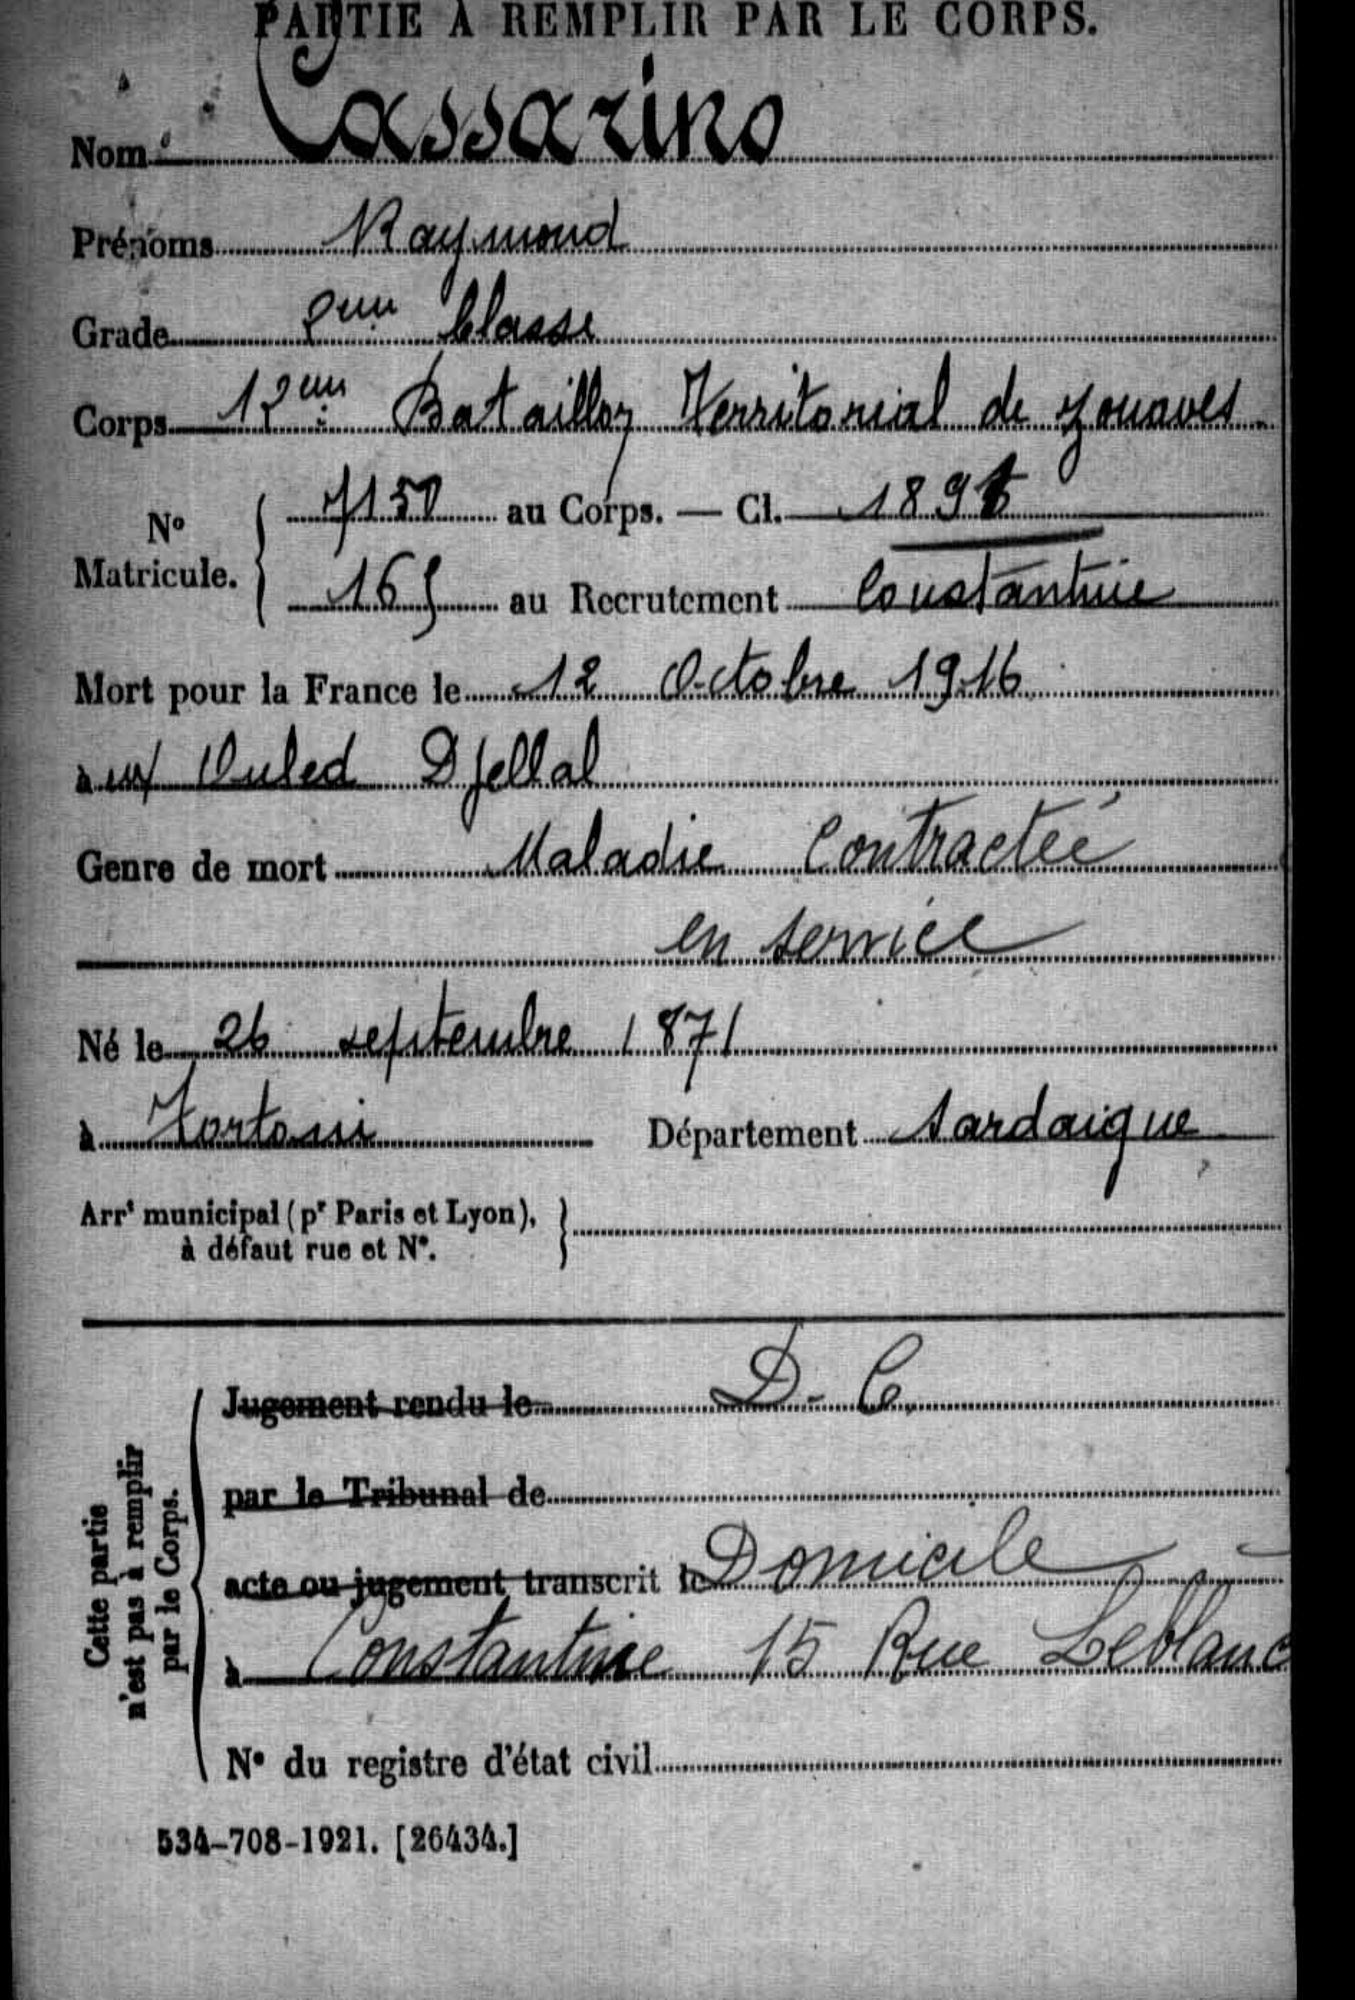 PARTIE À REMPLIR PAR LE CORPS.
Nom Cassarino
Prénoms Raymond
Grade 2eme Classe
Corps 12eme Bataillon Territorial de Zouaves
N° Matricule. { 7150 au Corps. — Cl. 1891
165 au Recrutement Constantine
Mort pour la France le 12 Octobre 1916
à Ouled Djellal
Genre de mort Maladie Contractée
en service
Né le 26 septembre 1871
à Tortoni Département Sardaigne
Arrt municipal (pr Paris et Lyon), à défaut rue et N°. }
Cette partie n'est pas à remplir par le Corps.
Jugement rendu le D. C.
par le Tribunal de
acte ou jugement transcrit le Domicile
à Constantine 15 Rue Leblanc
N° du registre d'état civil
534-708-1921. [26434.]